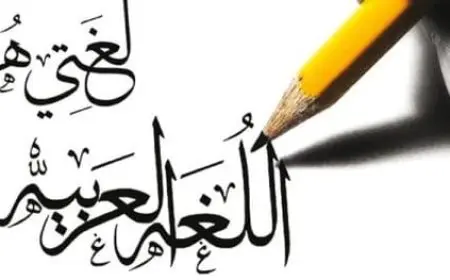 لغَتِي
اللُغَه العربيه